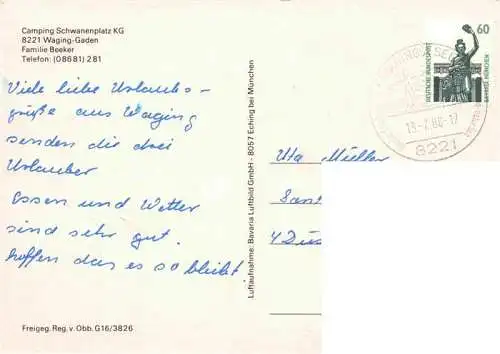 Camping Schwanenplatz KG
8221 Waging-Gaden
Familie Beeker
Telefon: (08681) 281
Viele liebe Urlaubs-
grüße aus Waging
senden die drei
Urlauber
Essen und Wetter
sind sehr gut.
hoffen das es so bleibt
Freigeg. Reg. v. Obb. G16/3826
Luftaufnahme: Bavaria Luftbild GmbH - 8057 Eching bei München
Uta Müller
4 Düs
60
DEUTSCHE BUNDESPOST
BAVARIA MÜNCHEN
8221